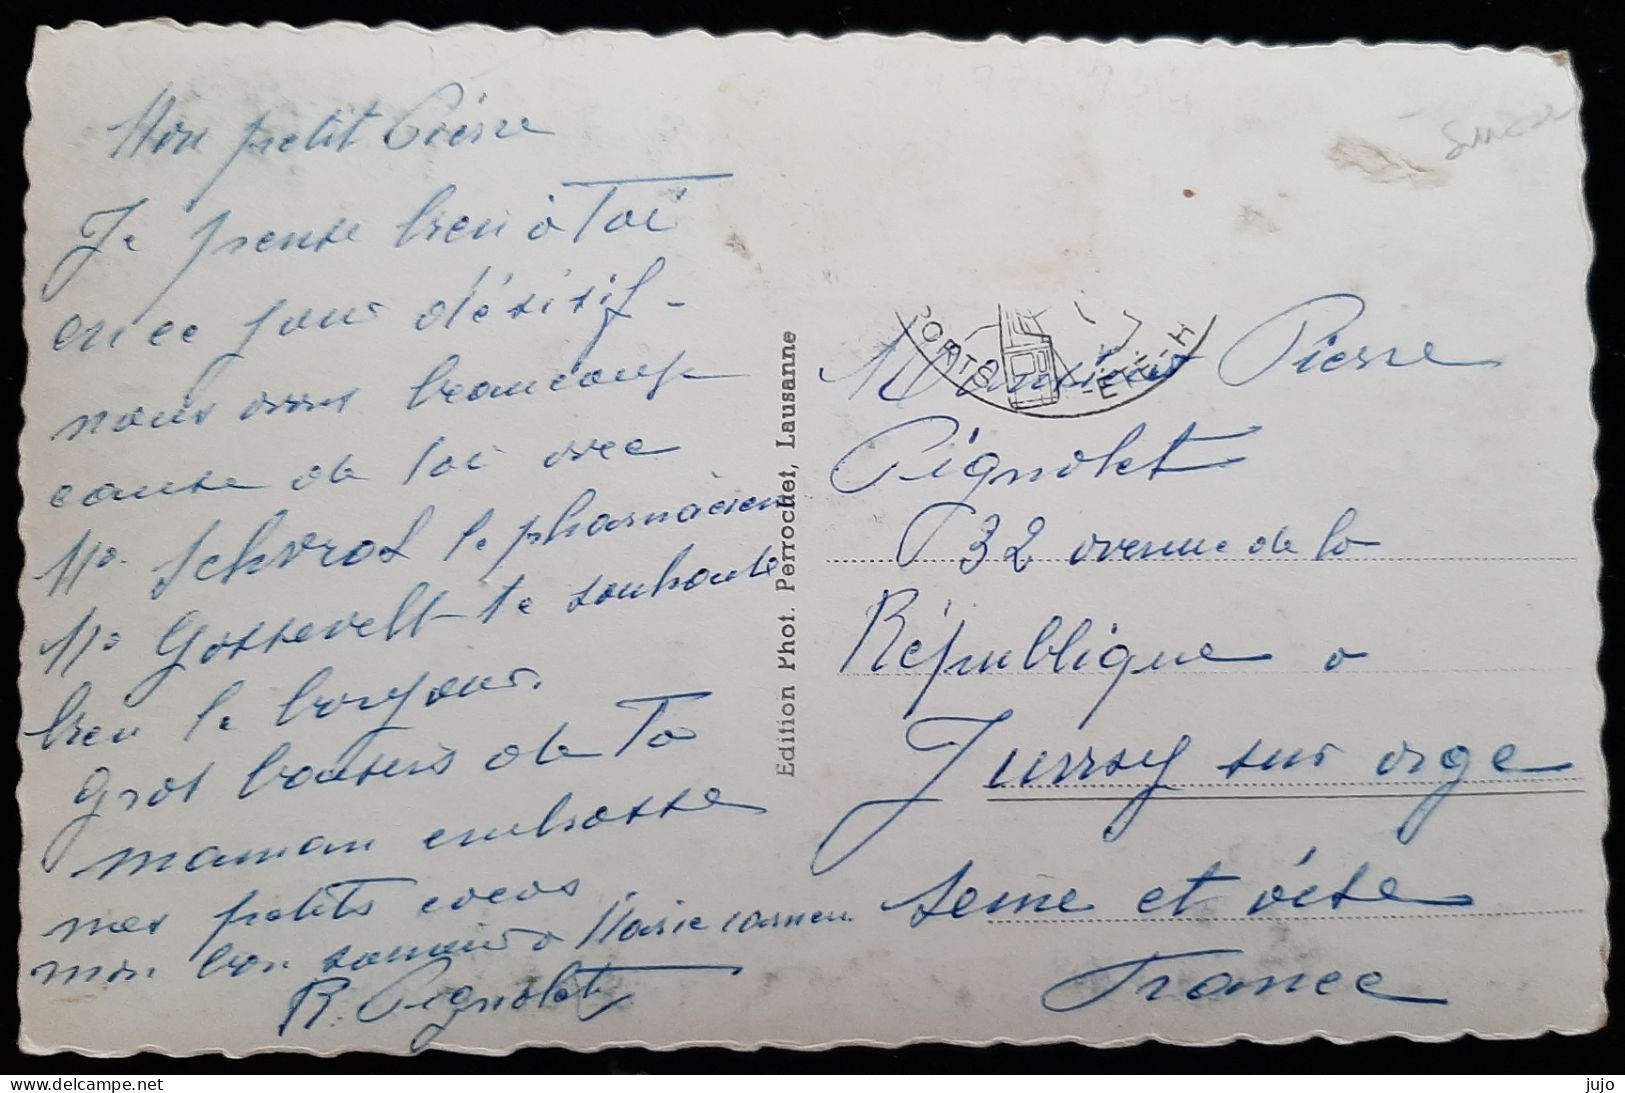 Mon petit Pierre
Je pense bien à Toi
en ce jour décisif -
nous avons beaucoup
cause de toi avec
le pharmacien
te souhaite
bien le bonjour.
Gros baisers de Ta
maman embrasse
mes petits cocos
mon bon souvenir a Marie carmen
R. Pignolet
Edition Phot. Perrochet, Lausanne
Suisse
PORTS
-ETÉ-H
Monsieur Pierre
Pignolet
32 avenue de la
République a
Juvisy sur orge
Seine et oise
France
jujo